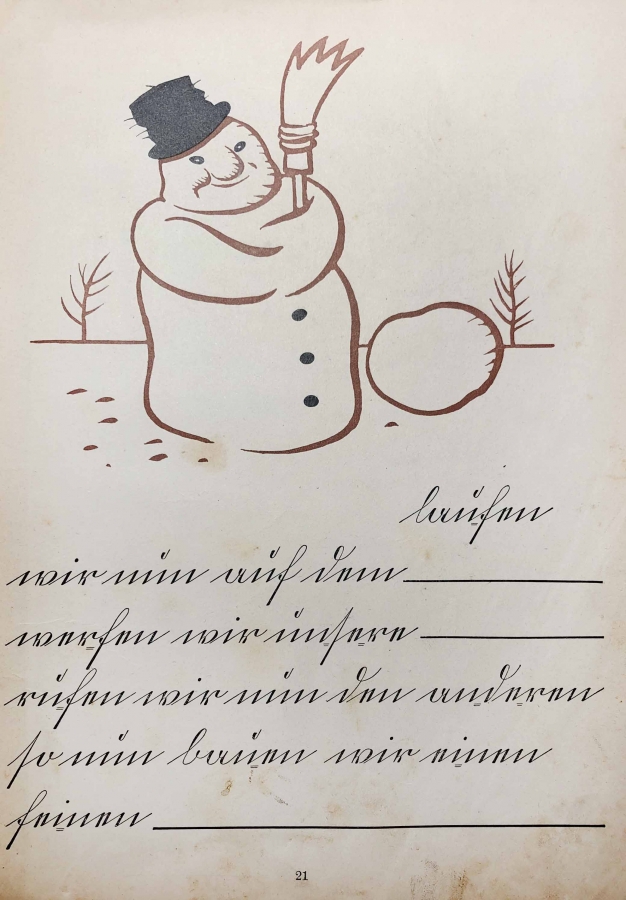 laufen
wir nun auf dem
werfen wir unsere
rufen wir nun den anderen
so nun bauen wir einen
feinen
21